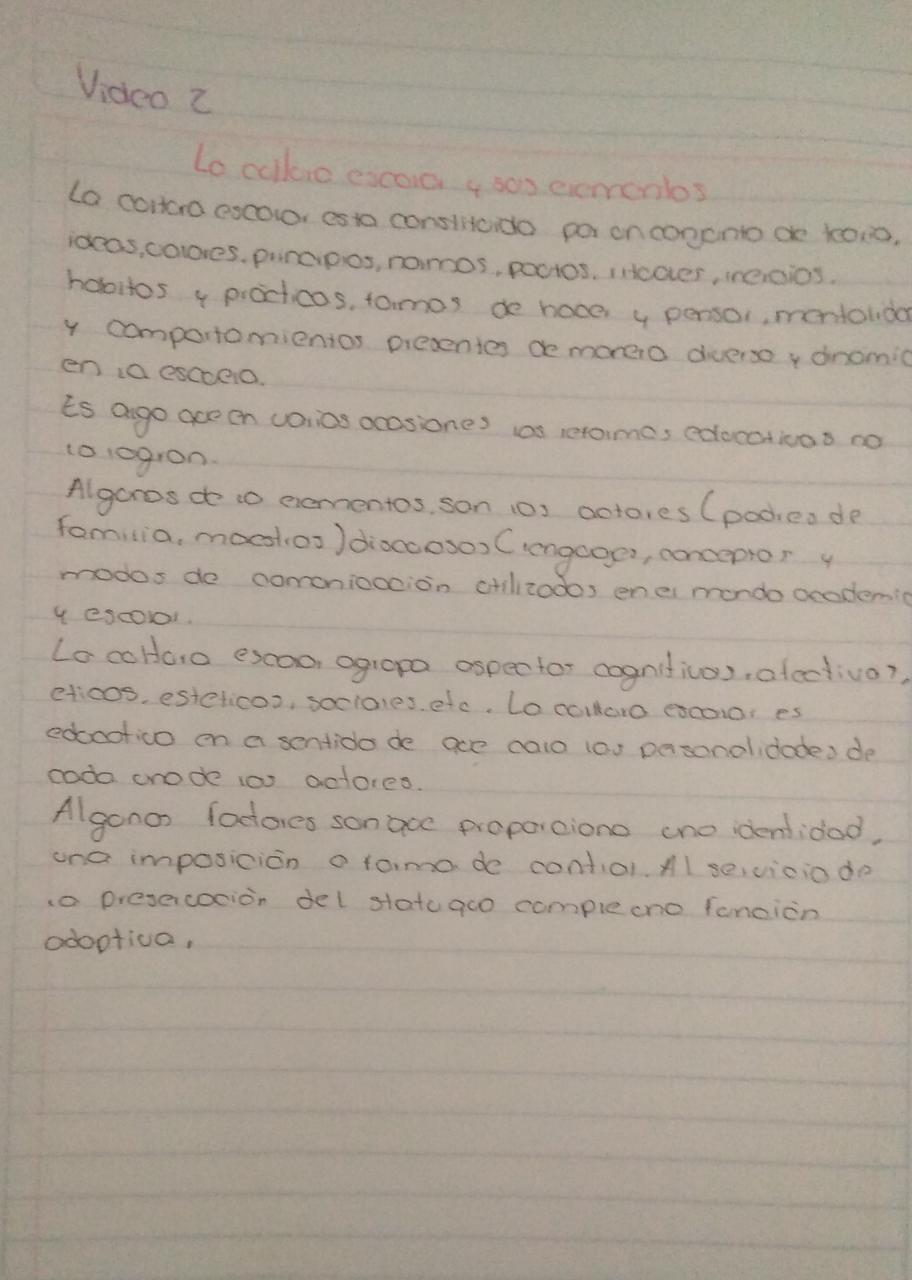 Video 2
La cultura escolar y sus elementos
La cultura escolar esta constituido por un conjunto de teoria,
ideas, valores, principios, normas, pactos, rituales, inercias,
habitos y prácticas, formas de hacer y pensar, mentalidad
y comportamientos presentes de manera diversa y dinamic
en la escuela.
Es algo que en varias ocasiones las reformas educativas no
lo logran.
Algunos de lo elementos, son los actores (padres de
familia, maestros) discursos (lenguajes, conceptos y
modos de comunicación utilizados en el mundo academic
y escolar.
La cultura escolar agrupa aspectos cognitivos, afectivos,
eticos, esteticos, sociales, etc. La cultura escolar es
educativo en a sentido de que cala las personalidades de
cada uno de los actores.
Algunos factores son que proporciona una identidad,
una imposición o forma de control. Al servicio de
la preservación del statu quo cumple una función
adaptiva.